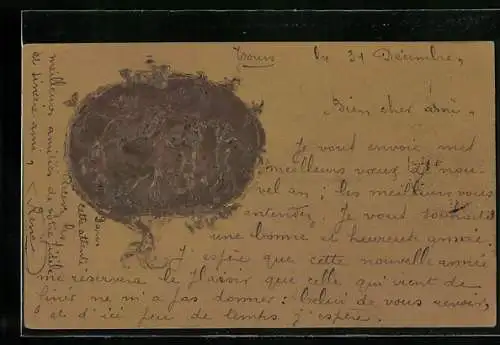 Tours le 31 Décembre,
Bien cher ami,
Je vous envoie mes
meilleurs vœux de nou-
vel an ; les meilleurs vous
entendez. Je vous souhaite
une bonne et heureuse année.
J'espère que cette nouvelle année
me réservera le plaisir que celle qui vient de
finir ne m'a pas donner : celui de vous revoir,
et d'ici peu de temps j'espère.
Dans
cette attente
Recevez les
meilleures amitiés de votre fidèle
et sincère ami,
René